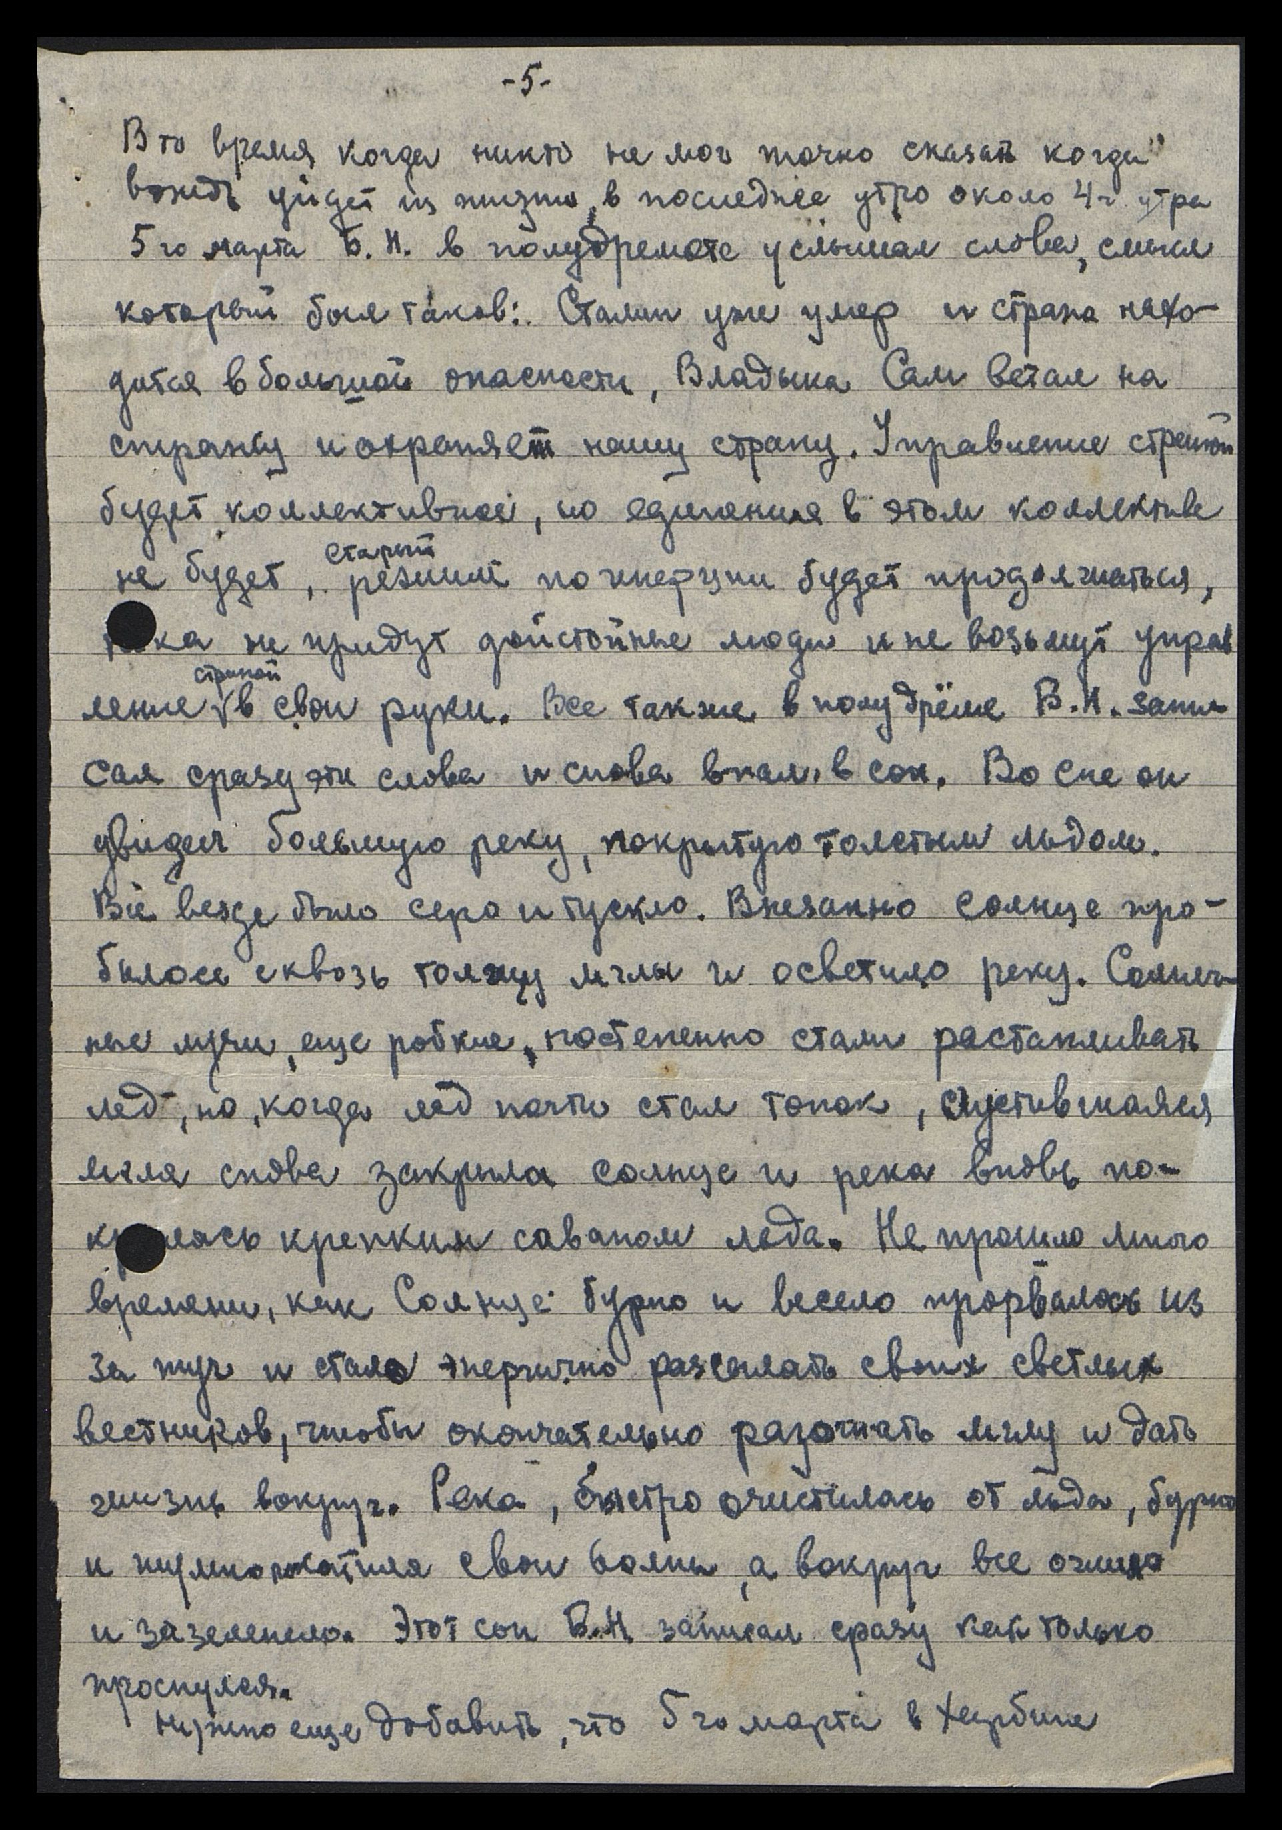 -5-
В то время когда никто не мог точно сказать когда"
вождь уйдет из жизни, в последнее утро около 4 ч. утра
5 го марта Б. Н. в полудремоте услышал слова, смысл
который был таков:. Сталин уже умер и страна нахо-
дится в большой опасности, Владыка Сам встал на
стражу и охраняет нашу страну. Управление страной
будет коллективное, но единения в этом коллективе
не будет, старый режим по инерции будет продолжаться,
пока не придут достойные люди и не возьмут управ
ление страной в свои руки. Все также в полудрёме Б. Н. запи
сал сразу эти слова и снова впал в сон. Во сне он
увидел большую реку, покрытую толстым льдом.
Всё везде было серо и тускло. Внезапно солнце про-
билось сквозь толщу мглы и осветило реку. Солнеч-
ные лучи, еще робкие, постепенно стали растапливать
лед, но, когда лёд почти стал тонок, сгустившаяся
мгла снова закрыла солнце и река вновь по-
крылась крепким саваном льда. Не прошло много
времени, как Солнце бурно и весело прорвалось из
за туч и стало энергично разсылать своих светлых
вестников, чтобы окончательно разогнать мглу и дать
жизнь вокруг. Река, быстро очистилась от льда, бурно
и шумно катила свои волны, а вокруг все ожило
и зазеленело. Этот сон Б. Н. записал сразу как только
проснулся.
Нужно еще добавить, что 5 го марта в Харбине